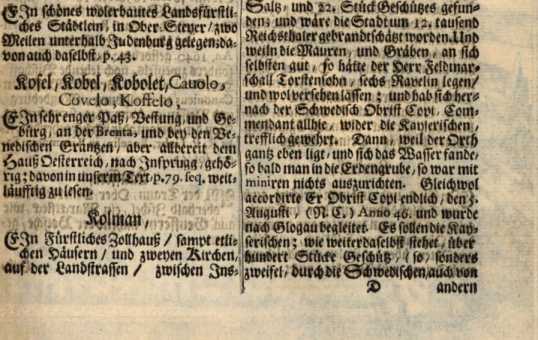 EIn schönes wolerbautes Landsfürstli-
ches Städtlein, in Ober-Steyer/ zwo
Meilen unterhalb Judenburg gelegen; da-
von auch daselbst, p. 43.
Kofel, Kobel, Kobolet, Cavolo,
Covelo, Koffelo,
EIn sehr enger Paß, Vestung, und Ge-
bürg, an der Brenta, und bey den Ve-
nedischen Gräntzen, aber allbereit dem
Hauß Oesterreich, nach Insprugg, gehö-
rig; davon in unserm Text, p. 79. seq. weit-
läufftig zu lesen.
Kolman,
EIn Fürstliches Zollhauß/ sampt etli-
chen Häusern/ und zweyen Kirchen,
auf der Landstrassen/ zwischen Ins-
Saltz, und 22. Stück Geschützes gefun-
den; und wäre die Stadt um 12. tausend
Reichsthaler gebrandschätzt worden. Und
weiln die Mauren, und Gräben, an sich
selbsten gut, so hätte der Herr Feldmar-
schall Torstensohn, sechs Ravelin legen/
und wol versehen lassen; und hab sich her-
nach der Schwedisch Obrist Copi, Com-
mendant allhie, wider die Kayserischen,
trefflich gewehrt. Dann, weil der Orth
gantz eben ligt, und sich das Wasser fande,
so bald man in die Erden grube, so war mit
miniren nichts auszurichten. Gleichwol
accordirte Er Obrist Copi endlich, den 5.
Augusti, (N. C.) Anno 46. und wurde
nach Glogau begleitet. Es sollen die Kay-
serischen; wie weiter daselbst stehet, über
hundert Stücke Geschütz, (so, sonders
zweifel, durch die Schwedischen, auch von
D andern